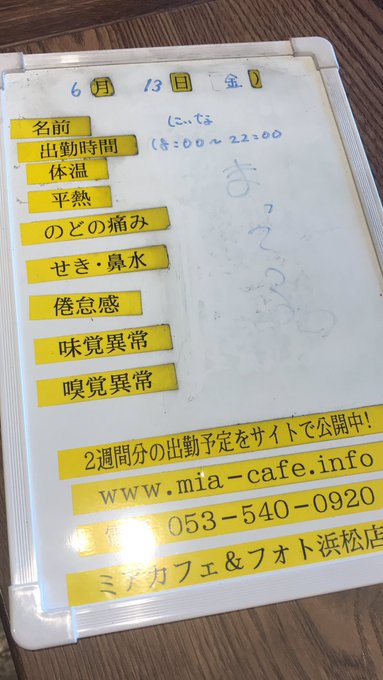 6月 13日 (金)
名前 にいな
出勤時間 18:00〜22:00
体温
平熱
のどの痛み
せき・鼻水
倦怠感
味覚異常
嗅覚異常
まってるね
2週間分の出勤予定をサイトで公開中!
www.mia-cafe.info
053-540-0920
ミアカフェ&フォト浜松店